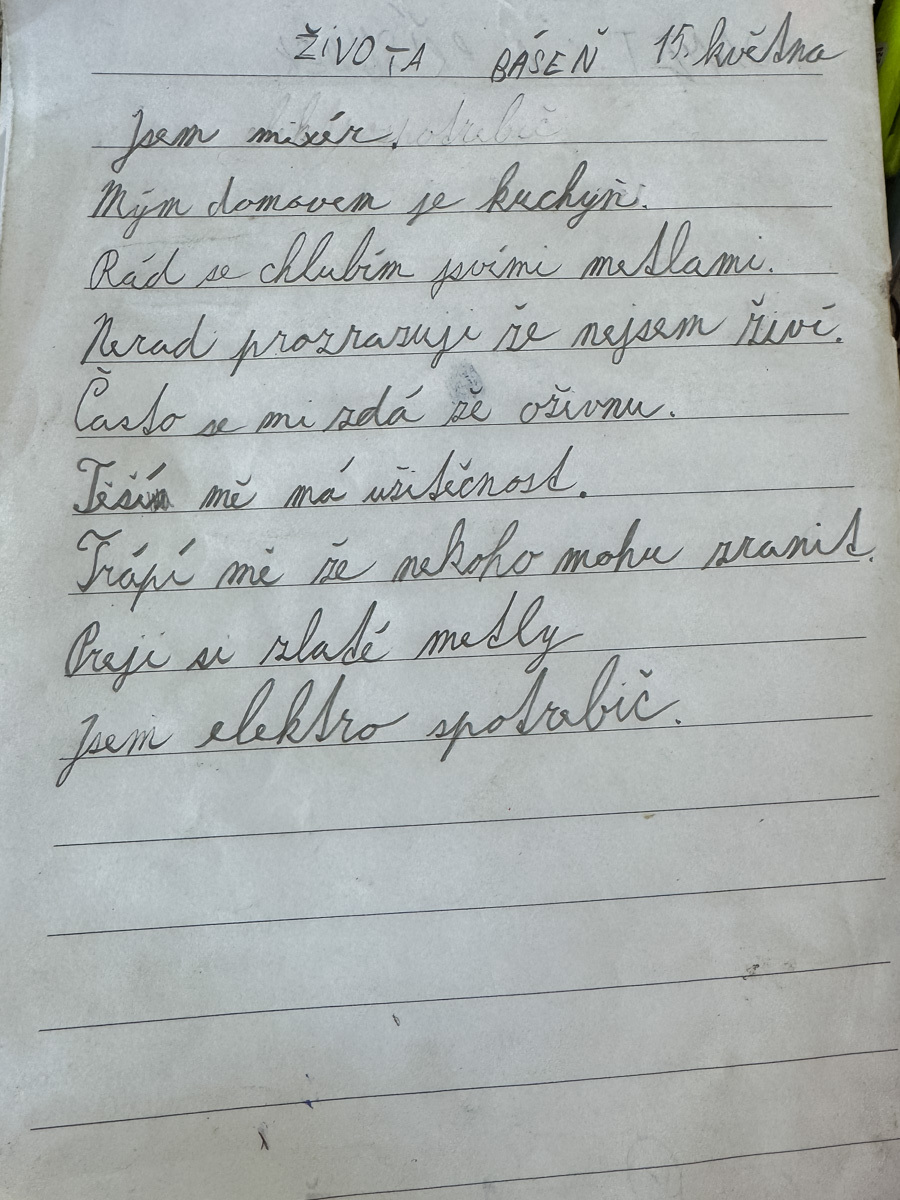 ŽIVOTA BÁSEŇ 15. května
Jsem mixér.
Mým domovem je kuchyň.
Rád se chlubím svími metlami.
Nerad prozrazuji že nejsem živí.
Často se mi zdá žě oživnu.
Těším mě má užitěčnost.
Trápí mě že nekoho mohu zranit.
Preji si zlaté metly
Jsem elektro spotrebič.